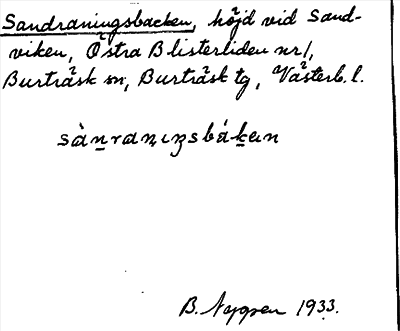 Sandraningsbacken, höjd vid Sand-
viken, Östra Blisterliden nr 1,
Burträsk sn, Burträsk tg, Västerb. l.
sàn̲raṇıŋsbák̲ɐn
B. 1933.